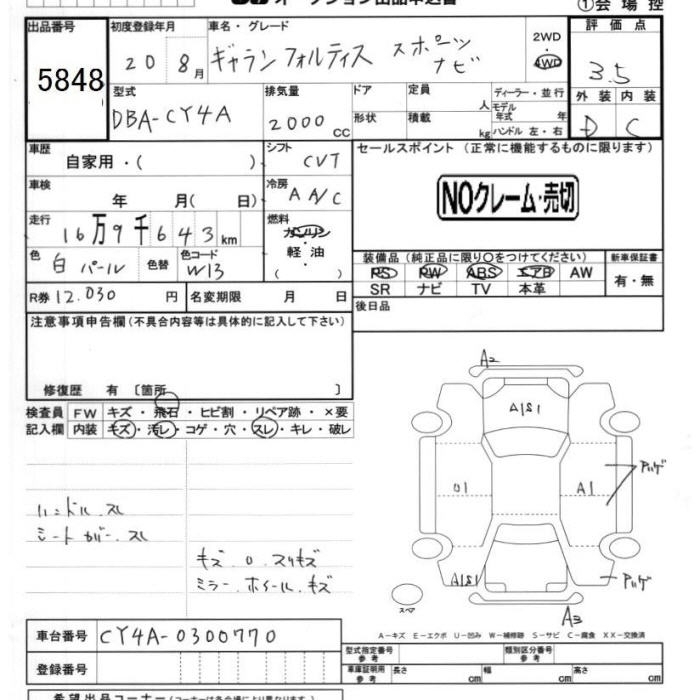 オークション出品申込書
①会場控
出品番号
5848
初度登録年月
20 8月
車名・グレード
ギャラン フォルティス スポーツ
ナビ
2WD
4WD
評価点
3.5
外装 内装
D C
型式
DBA-CY4A
排気量
2000 CC
ドア
形状
定員 人
積載 kg
ディーラー・並行
モデル年式 年
ハンドル 左・右
車歴
自家用・( )
シフト
CVT
セールスポイント (正常に機能するものに限ります)
NOクレーム・売切
車検
年 月( 日)
冷房
A A/C
走行
16万9千643km
燃料
ガソリン
・
軽油
( )
色
白 パール
色替
色コード
W13
装備品 (純正品に限り○をつけてください)
PS PW ABS エアB AW
SR ナビ TV 本革
新車保証書
有・無
R券 12.030 円
名変期限 月 日
後日品
注意事項申告欄 (不具合内容等は具体的に記入して下さい)
修復歴 有 〔箇所 〕
検査員
記入欄
FW キズ・飛石・ヒビ割・リペア跡・×要
内装 キズ・汚レ・コゲ・穴・スレ・キレ・破レ
ハンドル スレ
シートカバー スレ
キズ
スリキズ
ミラー ホイール キズ
A2
A1S1
A1
アハゲ
A1S1
アハゲ
A3
スペア
A-キズ E-エクボ U-凹み W-補修跡 S-サビ C-腐食 XX-交換済
車台番号
CY4A-0300770
登録番号
型式指定番号
参考
類別区分番号
参考
車庫証明用
参考
長さ cm
幅 cm
高さ cm
希望出品コーナー